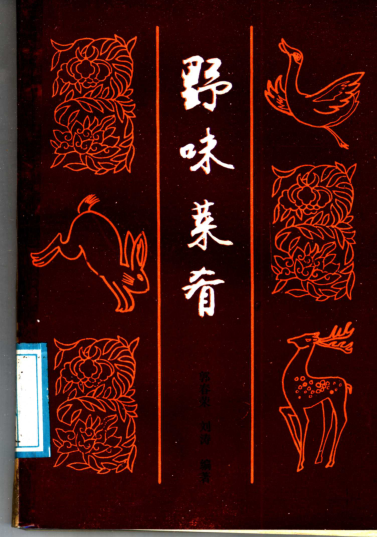 野味菜肴
刘 编著